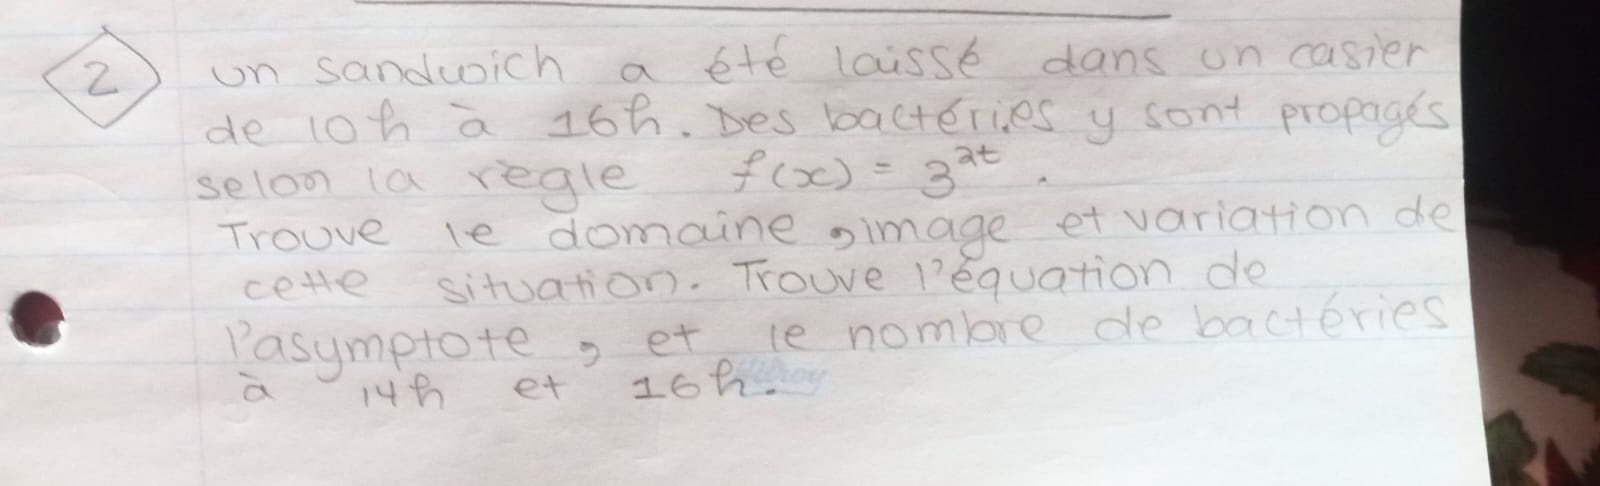 2 un sandwich a été laissé dans un casier
de 10h à 16h. Des bactéries y sont propagés
selon la règle f(x) = 3^2t.
Trouve le domaine, image et variation de
cette situation. Trouve l'équation de
l'asymptote, et le nombre de bactéries
à 14h et 16h.
Hilroy